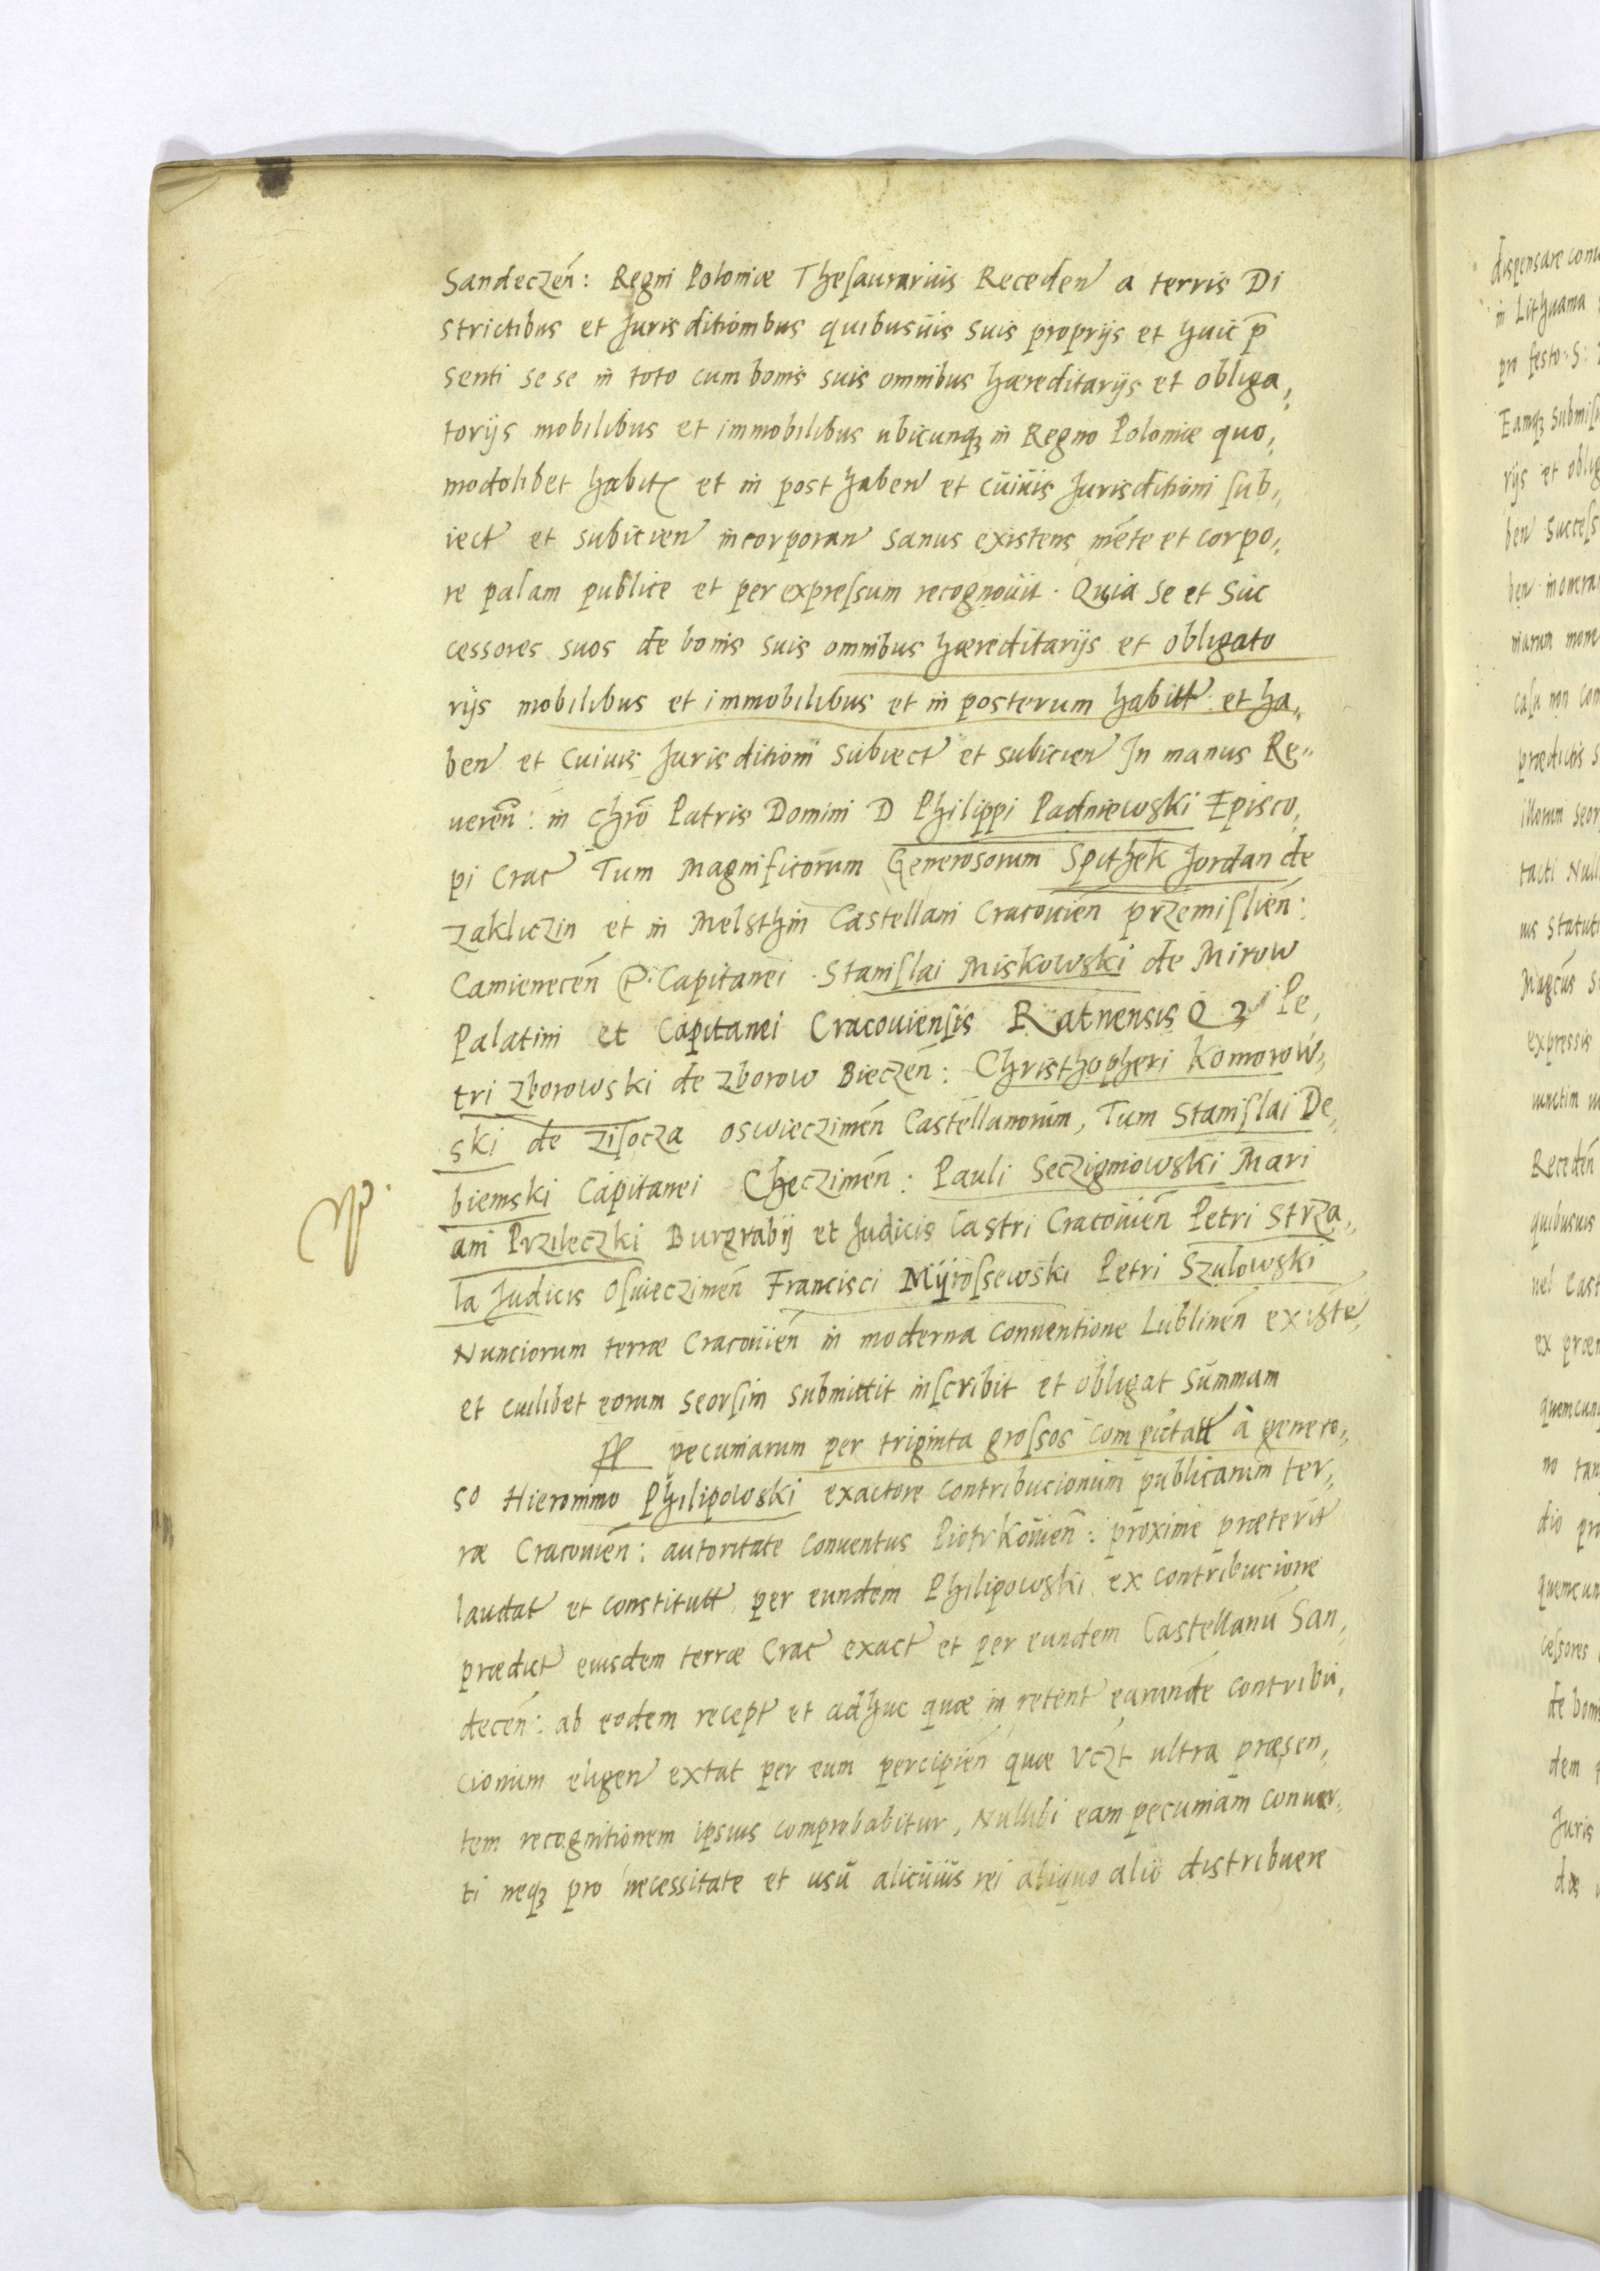 Sandeczeñ: Regni Poloniæ Thesaurarius Receden a terris Di
strictibus et Jurisditionibus quibusuis suis proprijs et huic p̄
senti se se in toto cum bonis suis omnibus hæreditarijs et obliga,,
torijs mobilibus et immobilibus ubicunqꝫ in Regno Poloniæ quo,,
modolibet habit et in post haben et cuiuis Jurisditioni sub,,
iect et subicien incorporan sanus existens mēte et corpo,,
re palam publice et per expressum recognouit. Quia se et Suc
cessores suos de bonis suis omnibus hæreditarijs et obligato
rijs mobilibus et immobilibus et in posterum habitt et ha,,
ben et cuiuis Jurisditioni subiect et subicien In manus Re,,
uereñ: in chr̄o Patris Domini D Philippi Padniewski Episco,,
pi Crac Tum Magnificorum Generosorum Spithek Jordan de
Zakliczin et in Melsthin Castellani Cracouieñ przemislieñ:
Camieneceñ Capitanei. Stanislai Miskowski de Mirow
Palatini et Capitanei Cracouiensis Ratnensis Pe,,
tri Zborowski de Zborow Bieczeñ: Christhopheri Komorow,,
ski de Zisocza Oswieczimeñ Castellanorum, Tum Stanislai De,,
biemski Capitanei Checzimeñ: Pauli Seczigniowski Mari
ani Przileczki Burgrabij et Judicis Castri Cracouieñ Petri Strza,,
la Judicis Oswieczimeñ Francisci Myrossewski Petri Szulowski
Nunciorum terræ Cracouieñ in moderna conuentione Lublineñ existē,,
et cuilibet eorum seorsim submittit inscribit et obligat Summam
pecuniarum per triginta grossos computatt à genero,,
so Hieronimo Philipowski exactore contribucionum publicarum ter,,
ræ Cracouieñ: autoritate conuentus Piotrkouieñ: proxime præterit
laudat et constitutt per eundem Philipowski ex contribucione
prædict eiusdem terræ Crac exact et per eundem Castellanū San,,
deceñ: ab eodem recept et adhuc quæ in retent earundē contribu,,
cionum eligen extat per eum percipieñ quæ vczt ultra præsen,,
tem recognitionem ipsius comprobabitur, Nullibi eam pecuniam conuer,,
ti neqꝫ pro necessitate et usū alicuius rei aliquo alio distribuere
dispensare conu
in Lithuania
pro festo S:
Eamqꝫ submis
rijs et oblig
ben success
casu non con
prædictis s
illorum seor
tacti Null
us statut
expressis
Receden
quibusuis
uel Cast
quemcunq
no tan
dio pr
quemcun
cessores
de bonis
dem
Juris